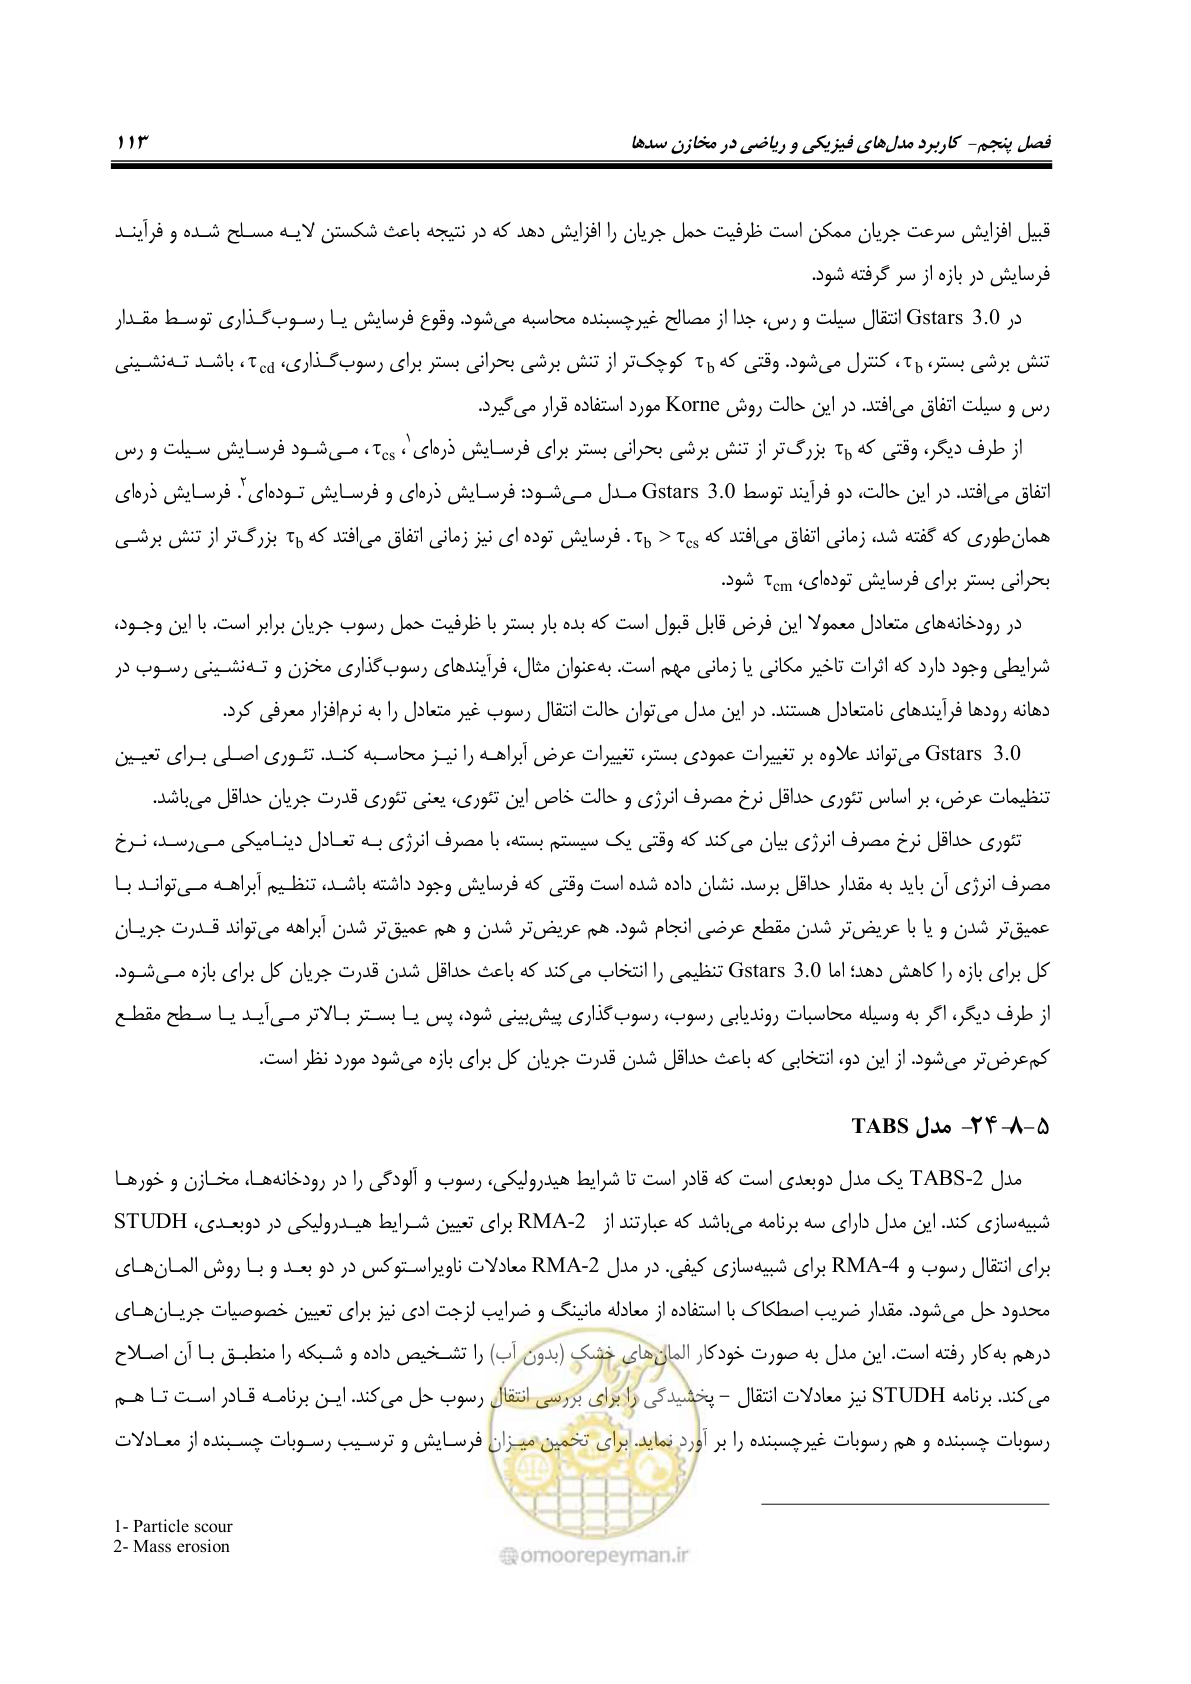 فصل پنجم- کاربرد مدل‌های فیزیکی و ریاضی در مخازن سدها ۱۱۳
قبیل افزایش سرعت جریان ممکن است ظرفیت حمل جریان را افزایش دهد که در نتیجه باعث شکستن لایه مسلح شده و فرآیند
فرسایش در بازه از سر گرفته شود.
در Gstars 3.0 انتقال سیلت و رس، جدا از مصالح غیرچسبنده محاسبه می‌شود. وقوع فرسایش یا رسوب‌گذاری توسط مقدار
تنش برشی بستر، τb، کنترل می‌شود. وقتی که τb کوچک‌تر از تنش برشی بحرانی بستر برای رسوب‌گذاری، τcd، باشد ته‌نشینی
رس و سیلت اتفاق می‌افتد. در این حالت روش Korne مورد استفاده قرار می‌گیرد.
از طرف دیگر، وقتی که τb بزرگ‌تر از تنش برشی بحرانی بستر برای فرسایش ذره‌ای۱، τcs، می‌شود فرسایش سیلت و رس
اتفاق می‌افتد. در این حالت، دو فرآیند توسط Gstars 3.0 مدل می‌شود: فرسایش ذره‌ای و فرسایش توده‌ای۲. فرسایش ذره‌ای
همان‌طوری که گفته شد، زمانی اتفاق می‌افتد که τb > τcs. فرسایش توده ای نیز زمانی اتفاق می‌افتد که τb بزرگ‌تر از تنش برشی
بحرانی بستر برای فرسایش توده‌ای، τcm شود.
در رودخانه‌های متعادل معمولا این فرض قابل قبول است که بده بار بستر با ظرفیت حمل رسوب جریان برابر است. با این وجود،
شرایطی وجود دارد که اثرات تاخیر مکانی یا زمانی مهم است. به‌عنوان مثال، فرآیندهای رسوب‌گذاری مخزن و ته‌نشینی رسوب در
دهانه رودها فرآیندهای نامتعادل هستند. در این مدل می‌توان حالت انتقال رسوب غیر متعادل را به نرم‌افزار معرفی کرد.
Gstars 3.0 می‌تواند علاوه بر تغییرات عمودی بستر، تغییرات عرض آبراهه را نیز محاسبه کند. تئوری اصلی برای تعیین
تنظیمات عرض، بر اساس تئوری حداقل نرخ مصرف انرژی و حالت خاص این تئوری، یعنی تئوری قدرت جریان حداقل می‌باشد.
تئوری حداقل نرخ مصرف انرژی بیان می‌کند که وقتی یک سیستم بسته، با مصرف انرژی به تعادل دینامیکی می‌رسد، نرخ
مصرف انرژی آن باید به مقدار حداقل برسد. نشان داده شده است وقتی که فرسایش وجود داشته باشد، تنظیم آبراهه می‌تواند با
عمیق‌تر شدن و یا با عریض‌تر شدن مقطع عرضی انجام شود. هم عریض‌تر شدن و هم عمیق‌تر شدن آبراهه می‌تواند قدرت جریان
کل برای بازه را کاهش دهد؛ اما Gstars 3.0 تنظیمی را انتخاب می‌کند که باعث حداقل شدن قدرت جریان کل برای بازه می‌شود.
از طرف دیگر، اگر به وسیله محاسبات روندیابی رسوب، رسوب‌گذاری پیش‌بینی شود، پس یا بستر بالاتر می‌آید یا سطح مقطع
کم‌عرض‌تر می‌شود. از این دو، انتخابی که باعث حداقل شدن قدرت جریان کل برای بازه می‌شود مورد نظر است.
۵-۸-۲۴- مدل TABS
مدل TABS-2 یک مدل دوبعدی است که قادر است تا شرایط هیدرولیکی، رسوب و آلودگی را در رودخانه‌ها، مخازن و خورها
شبیه‌سازی کند. این مدل دارای سه برنامه می‌باشد که عبارتند از RMA-2 برای تعیین شرایط هیدرولیکی در دوبعدی، STUDH
برای انتقال رسوب و RMA-4 برای شبیه‌سازی کیفی. در مدل RMA-2 معادلات ناویراستوکس در دو بعد و با روش المان‌های
محدود حل می‌شود. مقدار ضریب اصطکاک با استفاده از معادله مانینگ و ضرایب لزجت ادی نیز برای تعیین خصوصیات جریان‌های
درهم به‌کار رفته است. این مدل به صورت خودکار المان‌های خشک (بدون آب) را تشخیص داده و شبکه را منطبق با آن اصلاح
می‌کند. برنامه STUDH نیز معادلات انتقال – پخشیدگی را برای بررسی انتقال رسوب حل می‌کند. این برنامه قادر است تا هم
رسوبات چسبنده و هم رسوبات غیرچسبنده را بر آورد نماید. برای تخمین میزان فرسایش و ترسیب رسوبات چسبنده از معادلات
1- Particle scour
2- Mass erosion
@omoorepeyman.ir